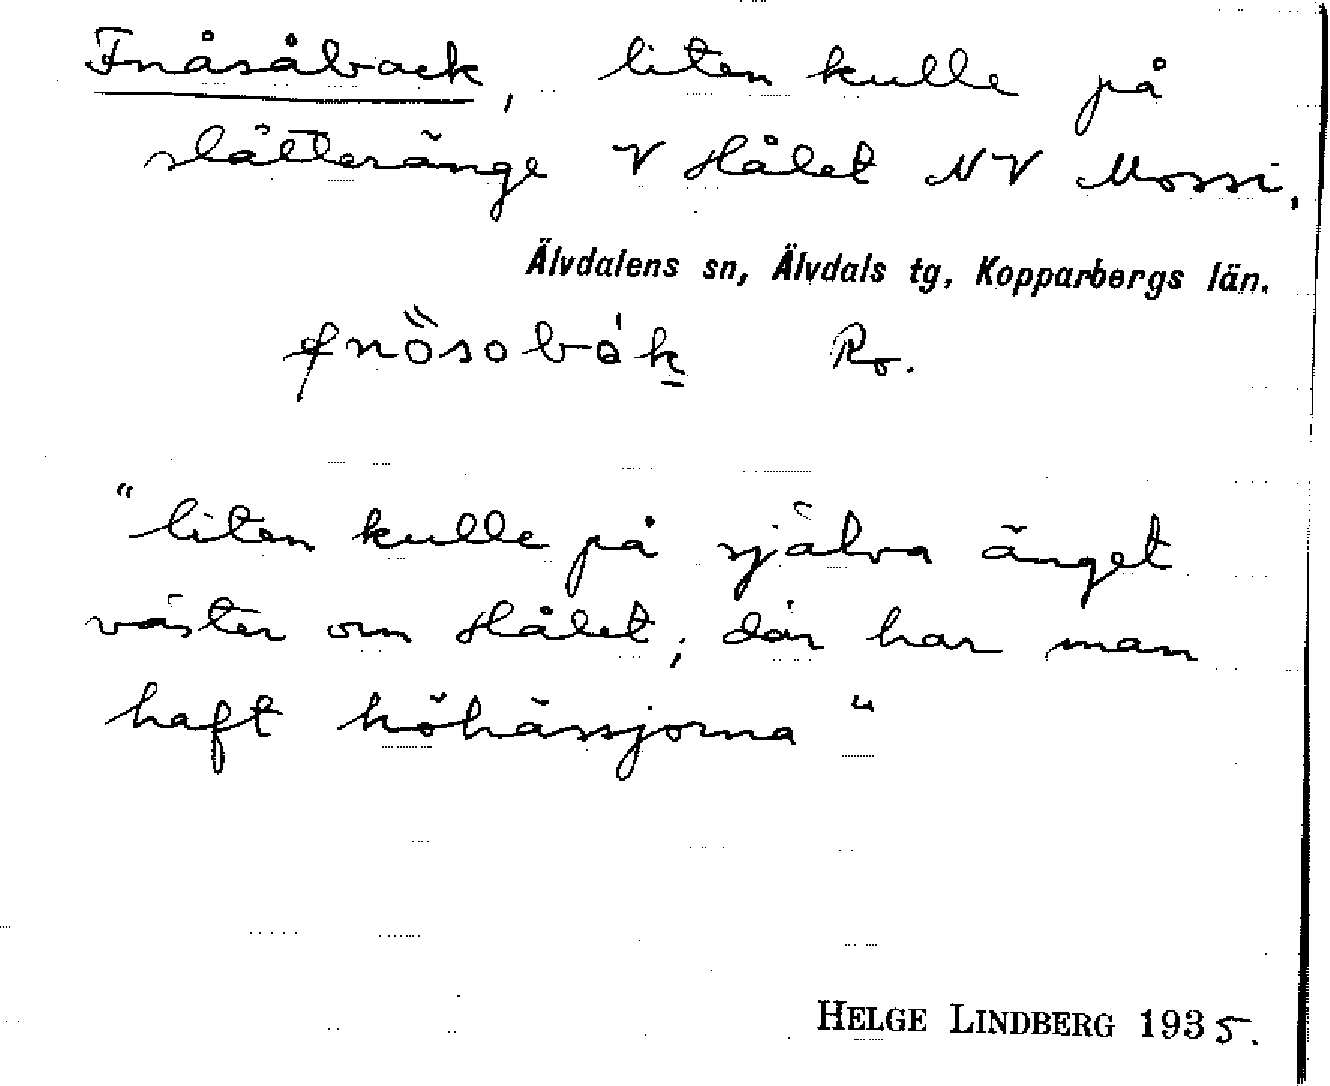 Fnåsåback, liten kulle på
slåtteränge V Hålet NV Mossi,
Älvdalens sn, Älvdals tg, Kopparbergs län.
fnösobák Ro.
"liten kulle på själva änget
väster om Hålet; där har man
haft höhässjorna"
HELGE LINDBERG 1935.